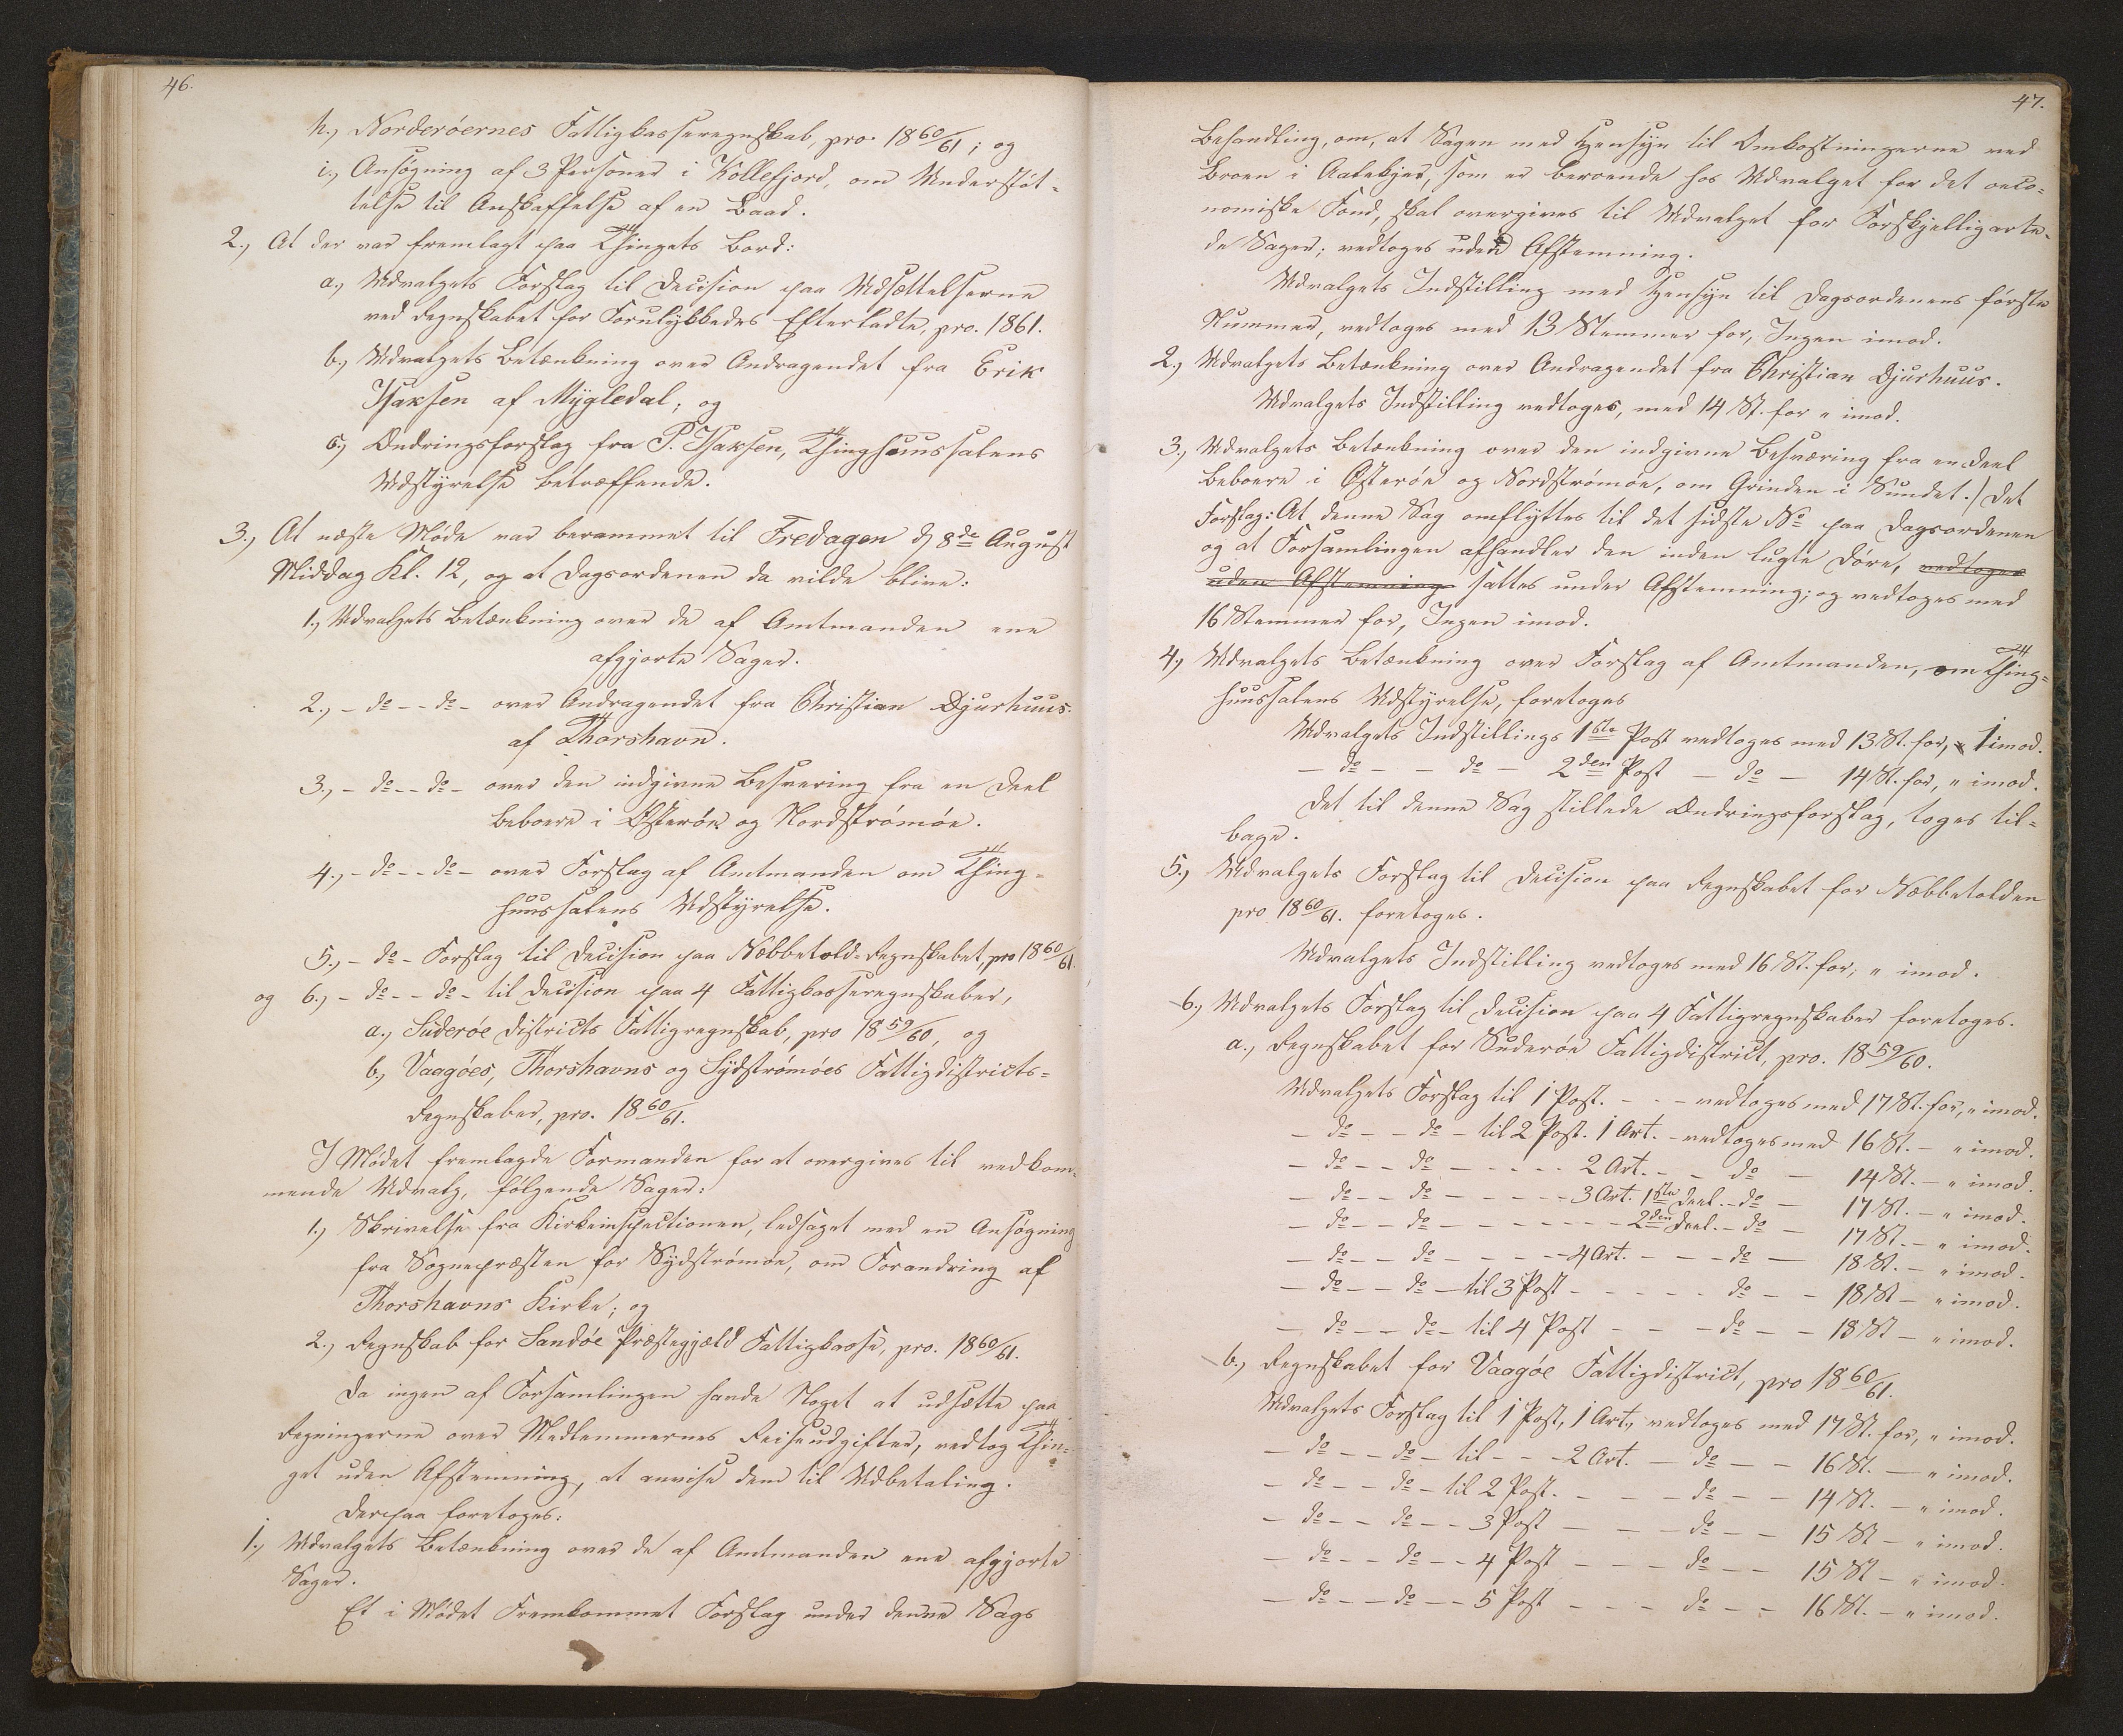 46.
h., Norderöernes Fattigkasseregnskab, pro. 1860/61; og
i., Ansögning af 3 Personer i Kollefjord, om Understöt-
telse til Anskaffelse af en Baad.
2., At der var fremlagt paa Thingets Bord:
a., Udvalgets Forslag til Decision paa Udsættelserne
ved Regnskabet for Forulykkedes Efterladte, pro. 1861.
b., Udvalgets Betænkning over Andragendet fra Erik
Isaksen af Mygledal; og
c., Ændringsforslag fra P. Isaksen, Thinghuussalens
Udstyrelse betræffende.
3., At næste Möde var berammet til Fredagen d 8de August
Middag Kl. 12, og at Dagsordenen da vilde blive:
1., Udvalgets Betænkning over de af Amtmanden ene
afgjorte Sager.
2., - do - - do - over Andragendet fra Christian Djurhuus.
af Thorshavn.
3., - do - - do - over den indgivne Besværing fra en Deel
Beboere i Österöe og Nordströmöe.
4., - do - - do - over Forslag af Amtmanden om Thing-
huussalens Udstyrelse.
5., - do - Forslag til Decision paa Næbbetold-Regnskabet, pro 1860/61.
og 6., - do - - do - til Decision paa 4 Fattigkasseregnskaber,
a., Suderöe Districts Fattigregnskab, pro 1859/60, og
b., Vaagöes, Thorshavns og Sydströmöes Fattigdistricts-
Regnskaber, pro. 1860/61.
I Mödet fremlagde Formanden for at overgives til vedkom-
mende Udvalg, fölgende Sager:
1., Skrivelse fra Kirkeinspectionen, ledsaget med en Ansögning
fra Sognepræsten for Sydströmöe, om Forandring af
Thorshavns Kirke; og
2., Regnskab for Sandöe Præstegjæld Fattigkasse, pro. 1860/61.
Da ingen af Forsamlingen havde Noget at udsætte paa
Regningerne over Medlemmernes Reiseudgifter, vedtog Thin-
get uden Afstemning, at anvise dem til Udbetaling.
Derpaa foretoges:
1., Udvalgets Betænkning over de af Amtmanden ene afgjorte
Sager.
Et i Mödet Fremkommet Forslag under denne Sags
47.
Behandling, om, at Sagen med Hensyn til Omkostningerne ved
Broen i Aakekjær, som er beroende hos Udvalget for det oeco-
nomiske Fond, skal overgives til Udvalget for Forskjelligarte-
de Sager; vedtoges uden Afstemning.
Udvalgets Indstilling med Hensyn til Dagsordenens förste
Nummer, vedtoges med 13 Stemmer for, Ingen imod.
2., Udvalgets Betænkning over Andragendet fra Christian Djurhuus.
Udvalgets Indstilling vedtoges, med 14 St. for „ imod.
3., Udvalgets Betænkning over den indgivne Besværing fra en Deel
Beboere i Österöe og Nordströmöe, om Grinden i Sundet.) Det
Forslag: At denne Sag omflyttes til det sidste No paa Dagsordenen
og at Forsamlingen afhandler den inden lugte Döre, vedtoges
uden Afstemning sattes under Afstemning; og vedtoges med
16 Stemmer for, Ingen imod.
4., Udvalgets Betænkning over Forslag af Amtmanden, om Thing-
huussalens Udstyrelse, foretoges
Udvalgets Indstillings 1ste Post vedtoges med 13 St. for, 1 imod.
- do - - do - 2den Post - do - 14 St. for, „ imod.
Det til denne Sag stillede Ændringsforslag, toges til-
bage.
5., Udvalgets Forslag til Decision paa Regnskabet for Næbbetolden
pro 1860/61. foretoges.
Udvalgets Indstilling vedtoges med 16 St. for, „ imod.
6., Udvalgets Forslag til Decision paa 4 Fattigregnskaber foretoges.
a., Regnskabet for Suderöe Fattigdistrict, pro. 1859/60.
Udvalgets Forslag til 1 Post. - - - vedtoges med 17 St. for, „ imod.
- do - - do - til 2 Post. 1 Art. - vedtoges med 16 St. - „ imod.
- do - - do - - - - - 2 Art. - - do - 14 St. - „ imod.
- do - - do - - - - - 3 Art. 1ste Deel. - do - 17 St. - „ imod.
- do - - do - - - - - - - 2den Deel. - do - 17 St. - „ imod.
- do - - do - - - - - 4 Art. - - - do - 18 St. - „ imod.
- do - - do - til 3 Post - - - - - do - - 18 St - „ imod.
- do - - do - til 4 Post - - - do - - 18 St - „ imod.
b., Regnskabet for Vaagöe Fattigdistrict, pro 1860/61.
Udvalgets Forslag til 1 Post, 1 Art., vedtoges med 17 St. for, „ imod.
- do - - do - til - - - 2 Art. - do - - 16 St. - „ imod.
- do - - do - til 2 Post. - - - do - - 14 St. - „ imod.
- do - - do - - 3 Post - - - do - - 15 St - „ imod.
- do - - do - - 4 Post - - - do - - 15 St - „ imod.
- do - - do - - 5 Post - - - do - - 16 St. - „ imod.